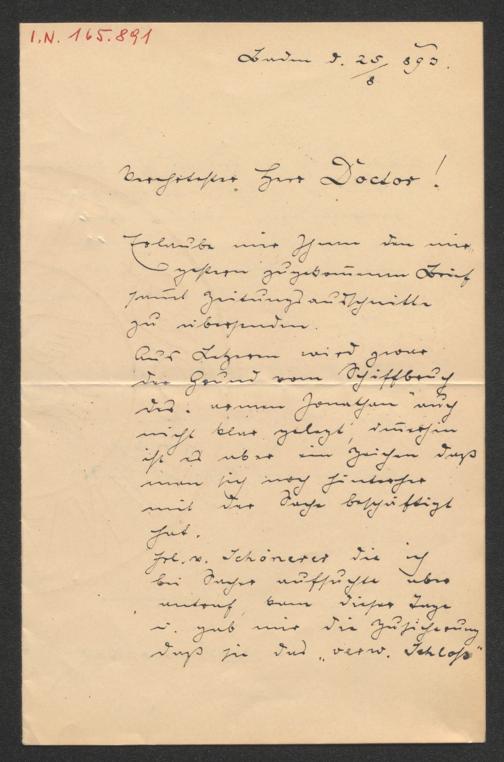 I.N. 165.891
Baden d. 25/8 893.
Verehrtester Herr Doctor!
Erlaube mir Ihnen den mir
gestern zugekom̅enen Brief
sam̅t Zeitungsausschnitte
zu übersenden.
Aus Letzerem wird zwar
der Grund vom Schiffbruch
des "armen Jonathan" auch
nicht klar gelegt, im̅erhin
ist es aber ein Zeichen daß
man sich noch hinterher
mit der Sache beschäftigt
hat.
Frl. v. Schönerer die ich
bei Sacher aufsuchte aber
antraf, kam dieser Tage
u. gab mir die Zusicherung
daß sie das „verw. Schloß"